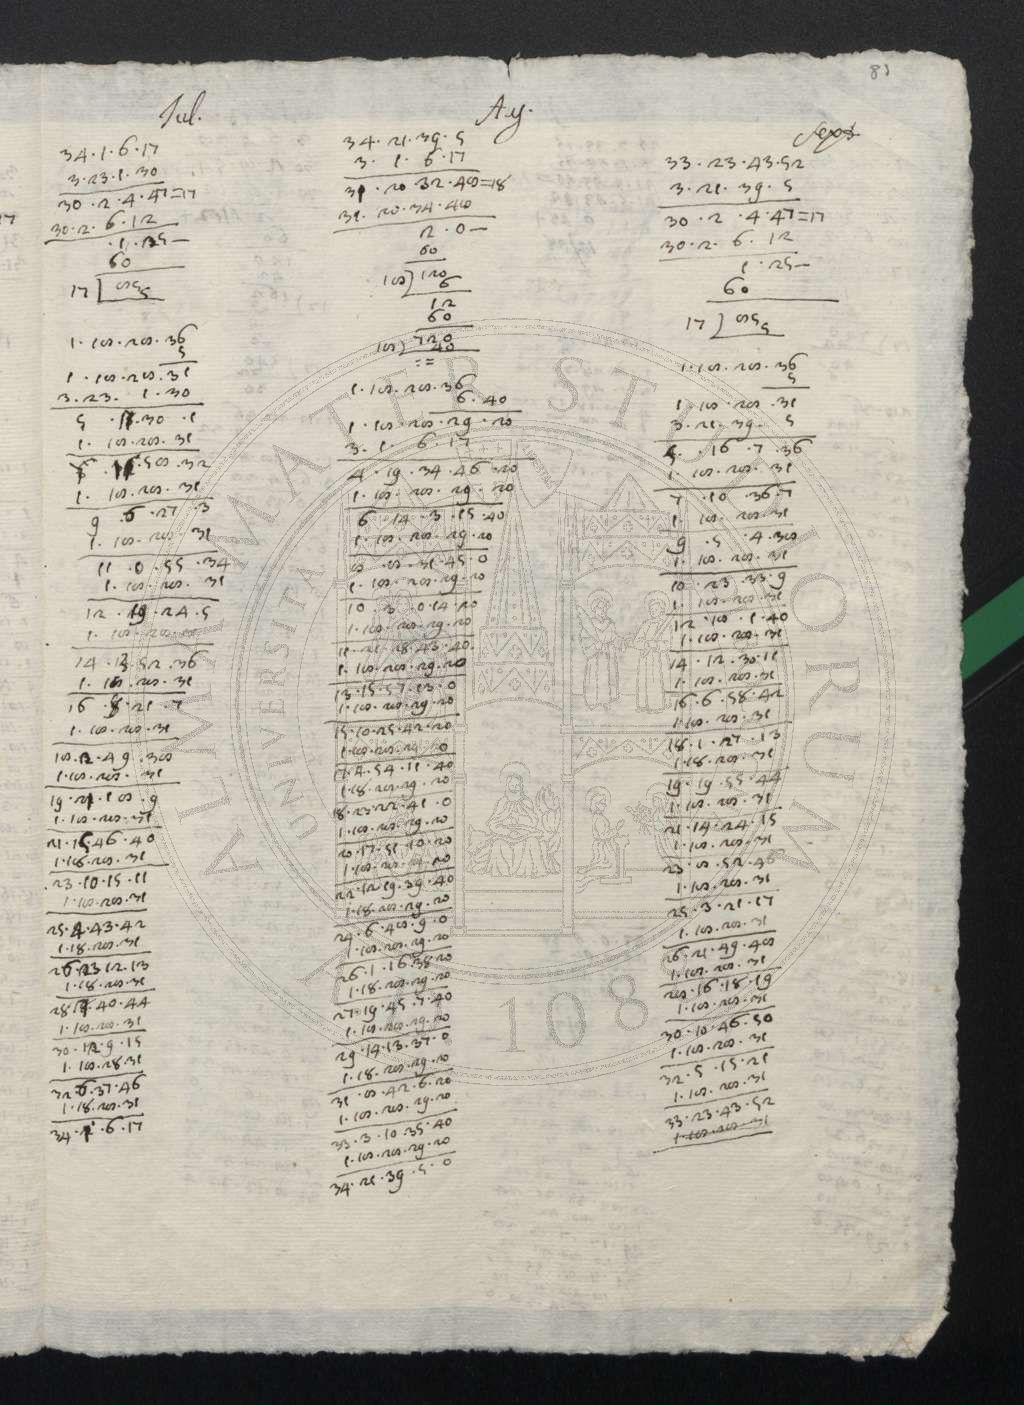 83
Jul.
34·1·6·17
3·23·1·30
30·2·4·47=17
30·2·6·12
·1·25—
60
17 [ 85 5
1·18·28·36
5
1·18·28·31
3·23·1·30
5·17·30·1
1·18·28·31
7·11·58·32
1·18·28·31
9·6·27·3
1·18·28·31
11·0·55·34
1·18·28·31
12·19·24·5
1·18·28·31
14·13·52·36
1·18·28·31
16·8·21·7
1·18·28·31
18·2·49·38
1·18·28·31
19·21·18·9
1·18·28·31
21·15·46·40
1·18·28·31
23·10·15·11
1·18·28·31
25·4·43·42
1·18·28·31
26·23·12·13
1·18·28·31
28·17·40·44
1·18·28·31
30·12·9·15
1·18·28·31
32·6·37·46
1·18·28·31
34·1·6·17
Ag.
34·21·39·5
3·1·6·17
31·20·32·48=18
31·20·34·48
2·0—
60
18) 120
6
12
60
18) 720
40
==
1·18·28·36
6·40
1·18·28·29·20
3·1·6·17
4·19·34·46·20
1·18·28·29·20
6·14·3·15·40
1·18·28·29·20
8·8·31·45·0
1·18·28·29·20
10·3·0·14·20
1·18·28·29·20
11·21·28·43·40
1·18·28·29·20
13·15·57·13·0
1·18·28·29·20
15·10·25·42·20
1·18·28·29·20
17·4·54·11·40
1·18·28·29·20
18·23·22·41·0
1·18·28·29·20
20·17·51·10·20
1·18·28·29·20
22·12·19·39·40
1·18·28·29·20
24·6·48·9·0
1·18·28·29·20
26·1·16·38·20
1·18·28·29·20
27·19·45·7·40
1·18·28·29·20
29·14·13·37·0
1·18·28·29·20
31·8·42·6·20
1·18·28·29·20
33·3·10·35·40
1·18·28·29·20
34·21·39·5·0
Sept
33·23·43·52
3·21·39·5
30·2·4·47=17
30·2·6·12
1·25—
60
17 ) 85 5
1·18·28·36
5
1·18·28·31
3·21·39·5
5·16·7·36
1·18·28·31
7·10·36·7
1·18·28·31
9·5·4·38
1·18·28·31
10·23·33·9
1·18·28·31
12·18·1·40
1·18·28·31
14·12·30·11
1·18·28·31
16·6·58·42
1·18·28·31
18·1·27·13
1·18·28·31
19·19·55·44
1·18·28·31
21·14·24·15
1·18·28·31
23·8·52·46
1·18·28·31
25·3·21·17
1·18·28·31
26·21·49·48
1·18·28·31
28·16·18·19
1·18·28·31
30·10·46·50
1·18·28·31
32·5·15·21
1·18·28·31
33·23·43·52
1·18·28·31
ALMA MATER STUDIORUM
UNIVERSITÀ
1088